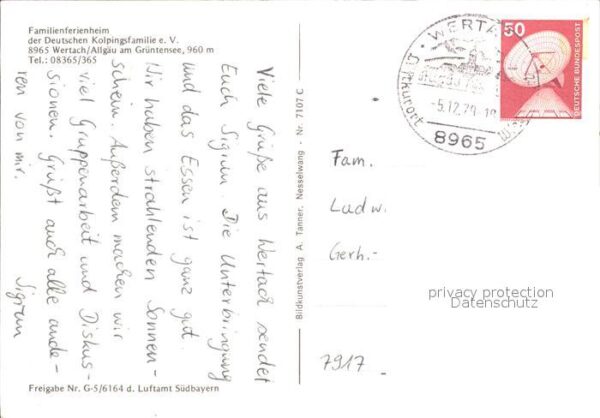 Familienferienheim
der Deutschen Kolpingsfamilie e. V.
8965 Wertach/Allgäu am Grüntensee, 960 m
Tel.: 08365/365
Viele Grüße aus Wertach sendet
Euch Sigrun. Die Unterbringung
und das Essen ist ganz gut.
Wir haben strahlenden Sonnen-
schein. Außerdem machen wir
viel Gruppenarbeit und Diskus-
sionen. Grüßt auch alle ande-
ren von mir.
Sigrun
Freigabe Nr. G-5/6164 d. Luftamt Südbayern
Bildkunstverlag A. Tanner, Nesselwang - Nr. 7107 C
WERTA
Luftkurort
-5.12.79-18
8965
50
DEUTSCHE BUNDESPOST
Fam.
Ludw.
Gerh.-
privacy protection
Datenschutz
7917